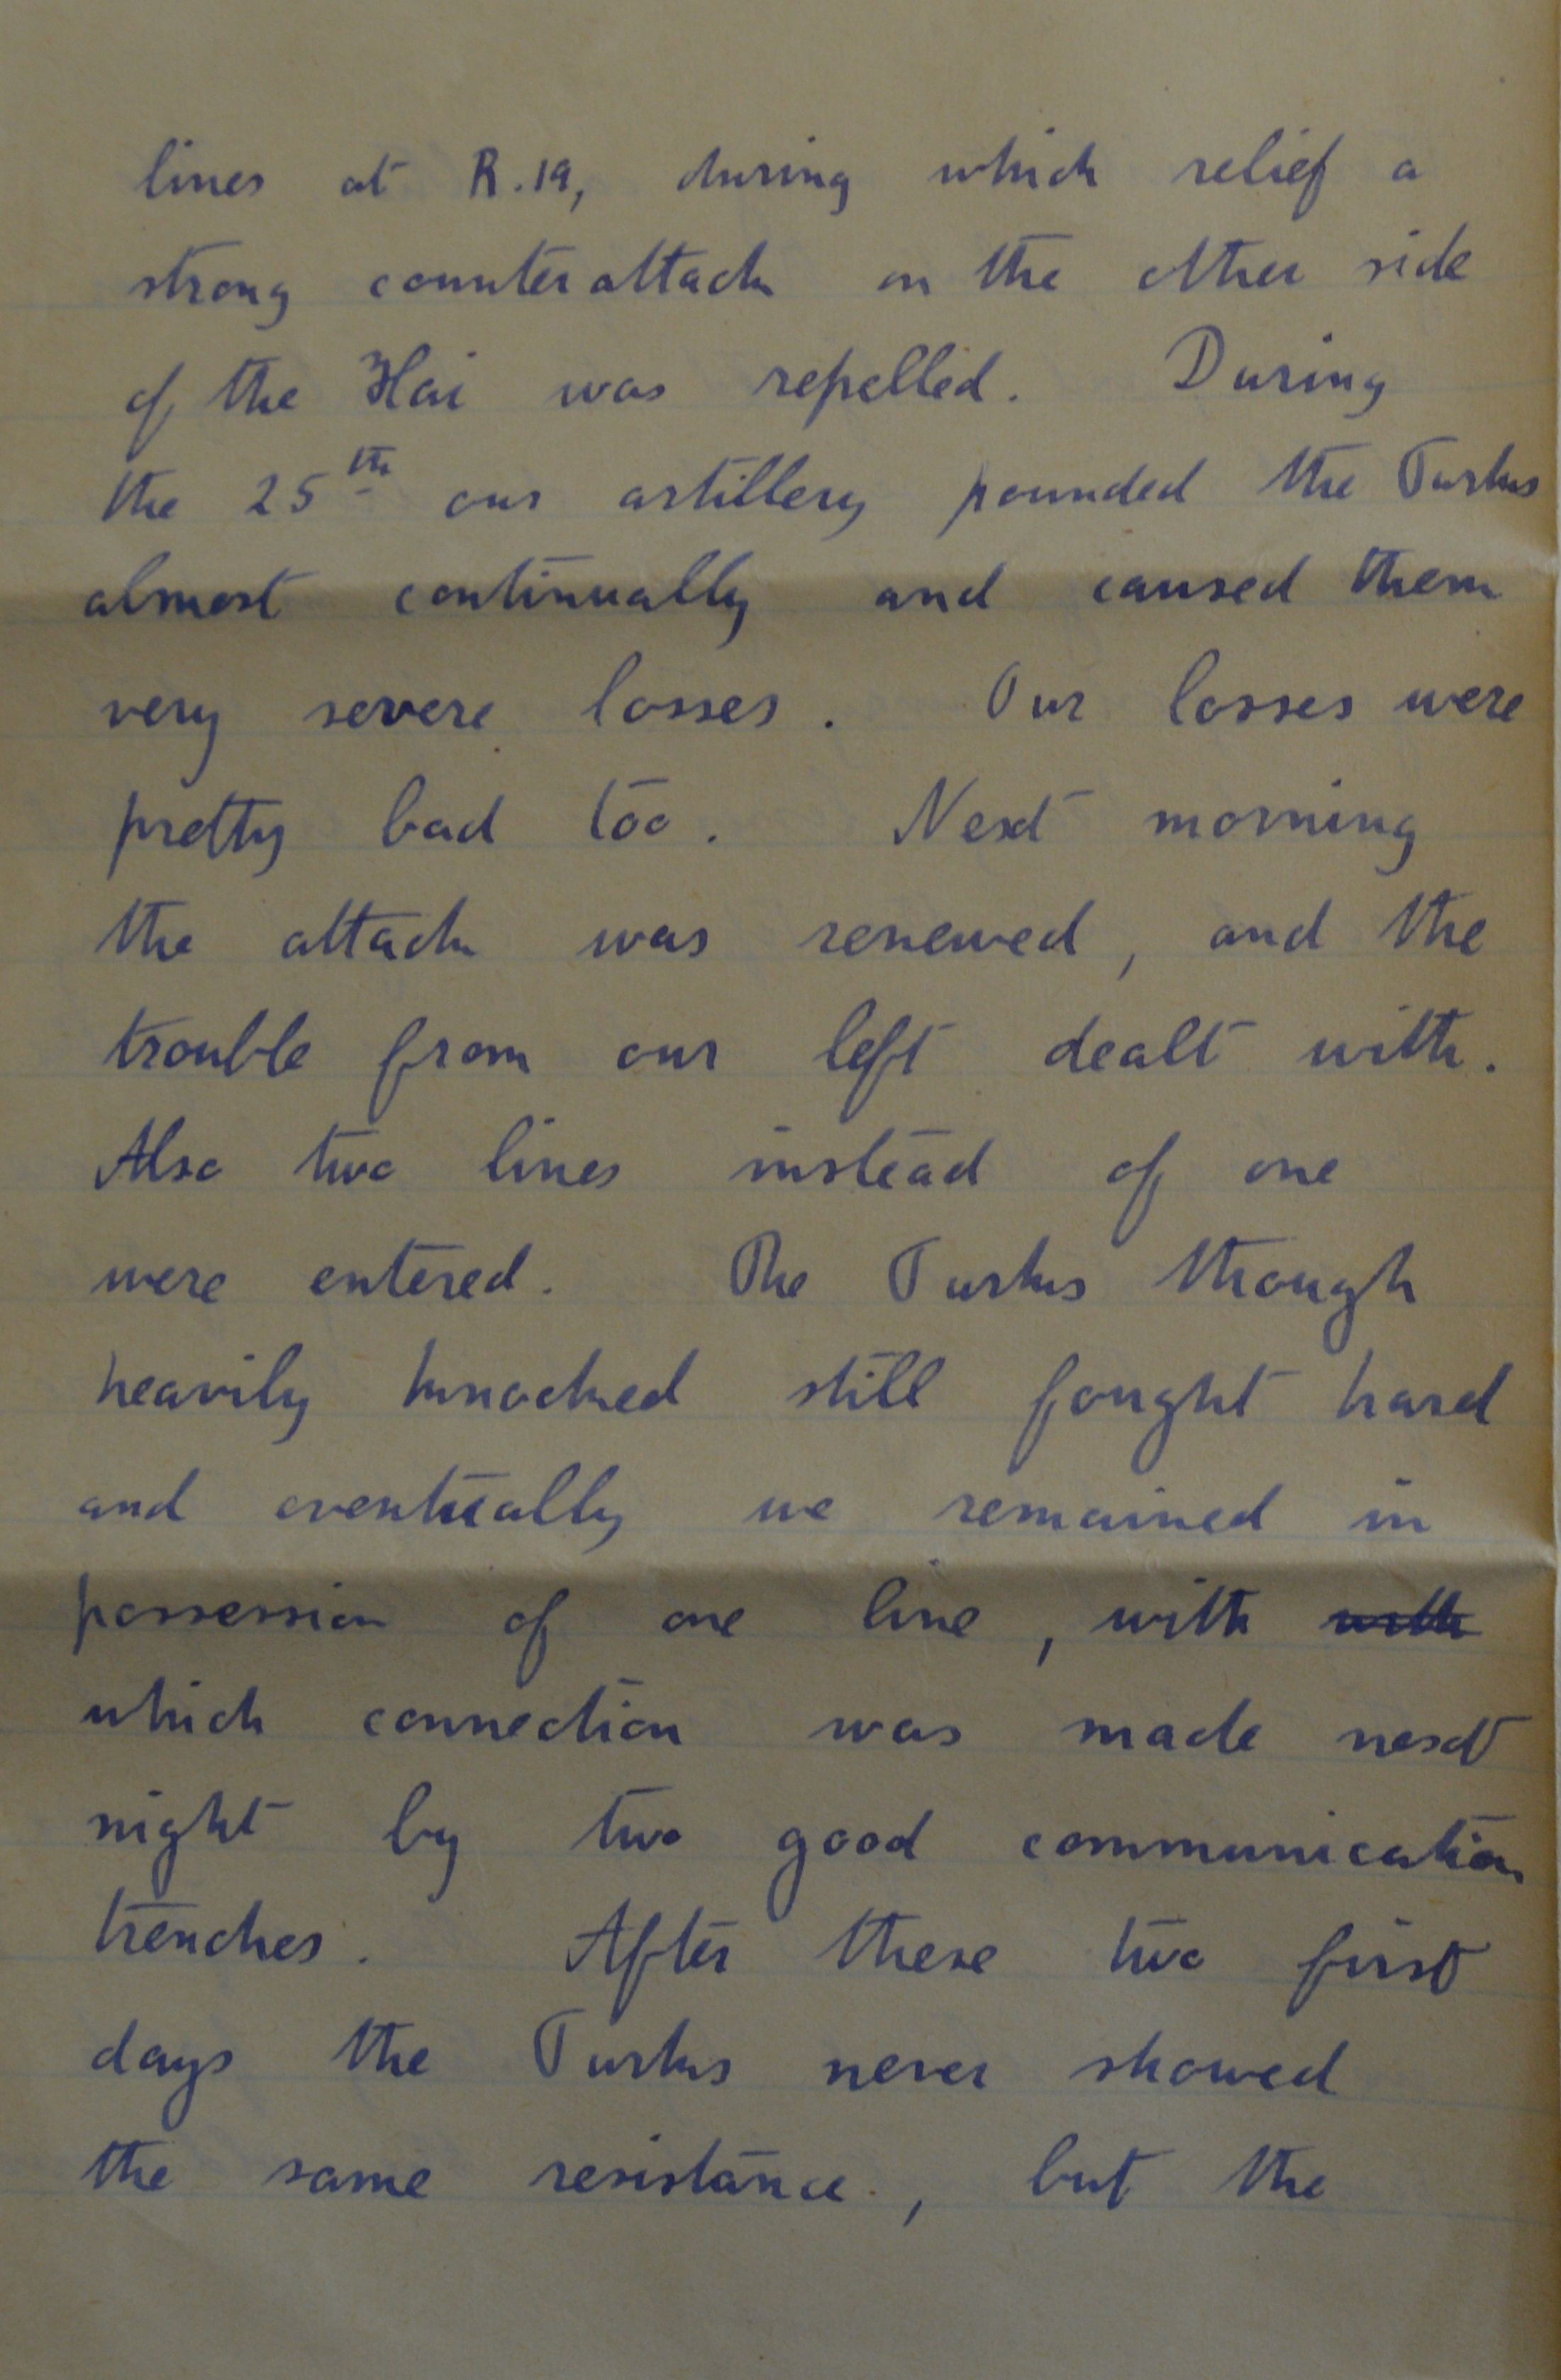 lines at R.19, during which relief a
strong counterattack on the other side
of the Hai was repelled. During
the 25th our artillery pounded the Turks
almost continually and caused them
very severe losses. Our losses were
pretty bad too. Next morning
the attack was renewed, and the
trouble from our left dealt with.
Also two lines instead of one
were entered. The Turks though
heavily knocked still fought hard
and eventually we remained in
possession of one line, with with
which connection was made next
night by two good communication
trenches. After these two first
days the Turks never showed
the same resistance, but the